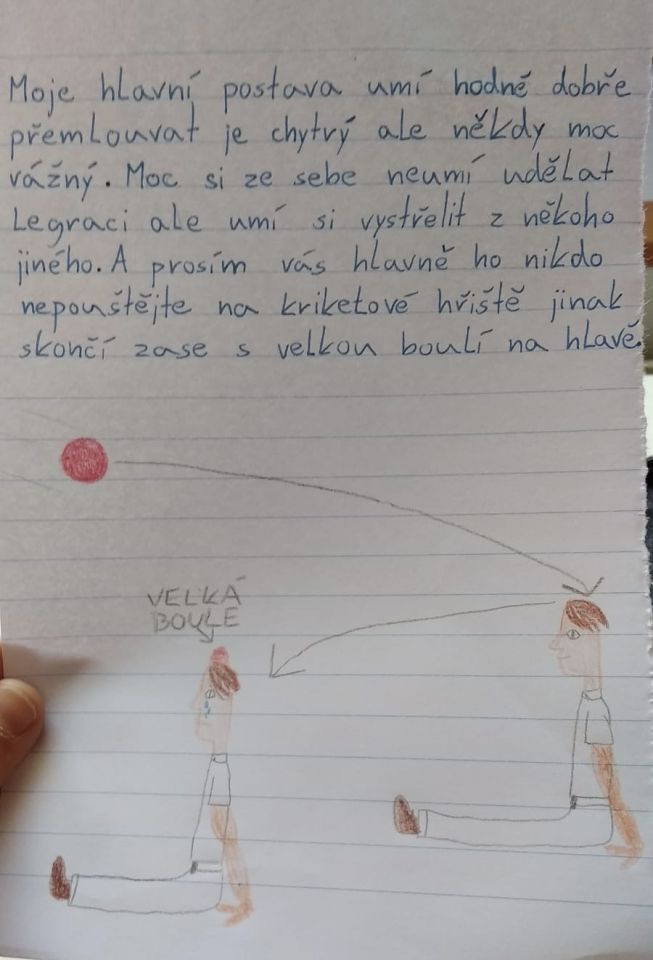 Moje hlavní postava umí hodně dobře
přemlouvat je chytrý ale někdy moc
vážný. Moc si ze sebe neumí udělat
Legraci ale umí si vystřelit z někoho
jiného. A prosím vás hlavně ho nikdo
nepouštějte na kriketové hřiště jinak
skončí zase s velkou boulí na hlavě.
VELKÁ
BOULE